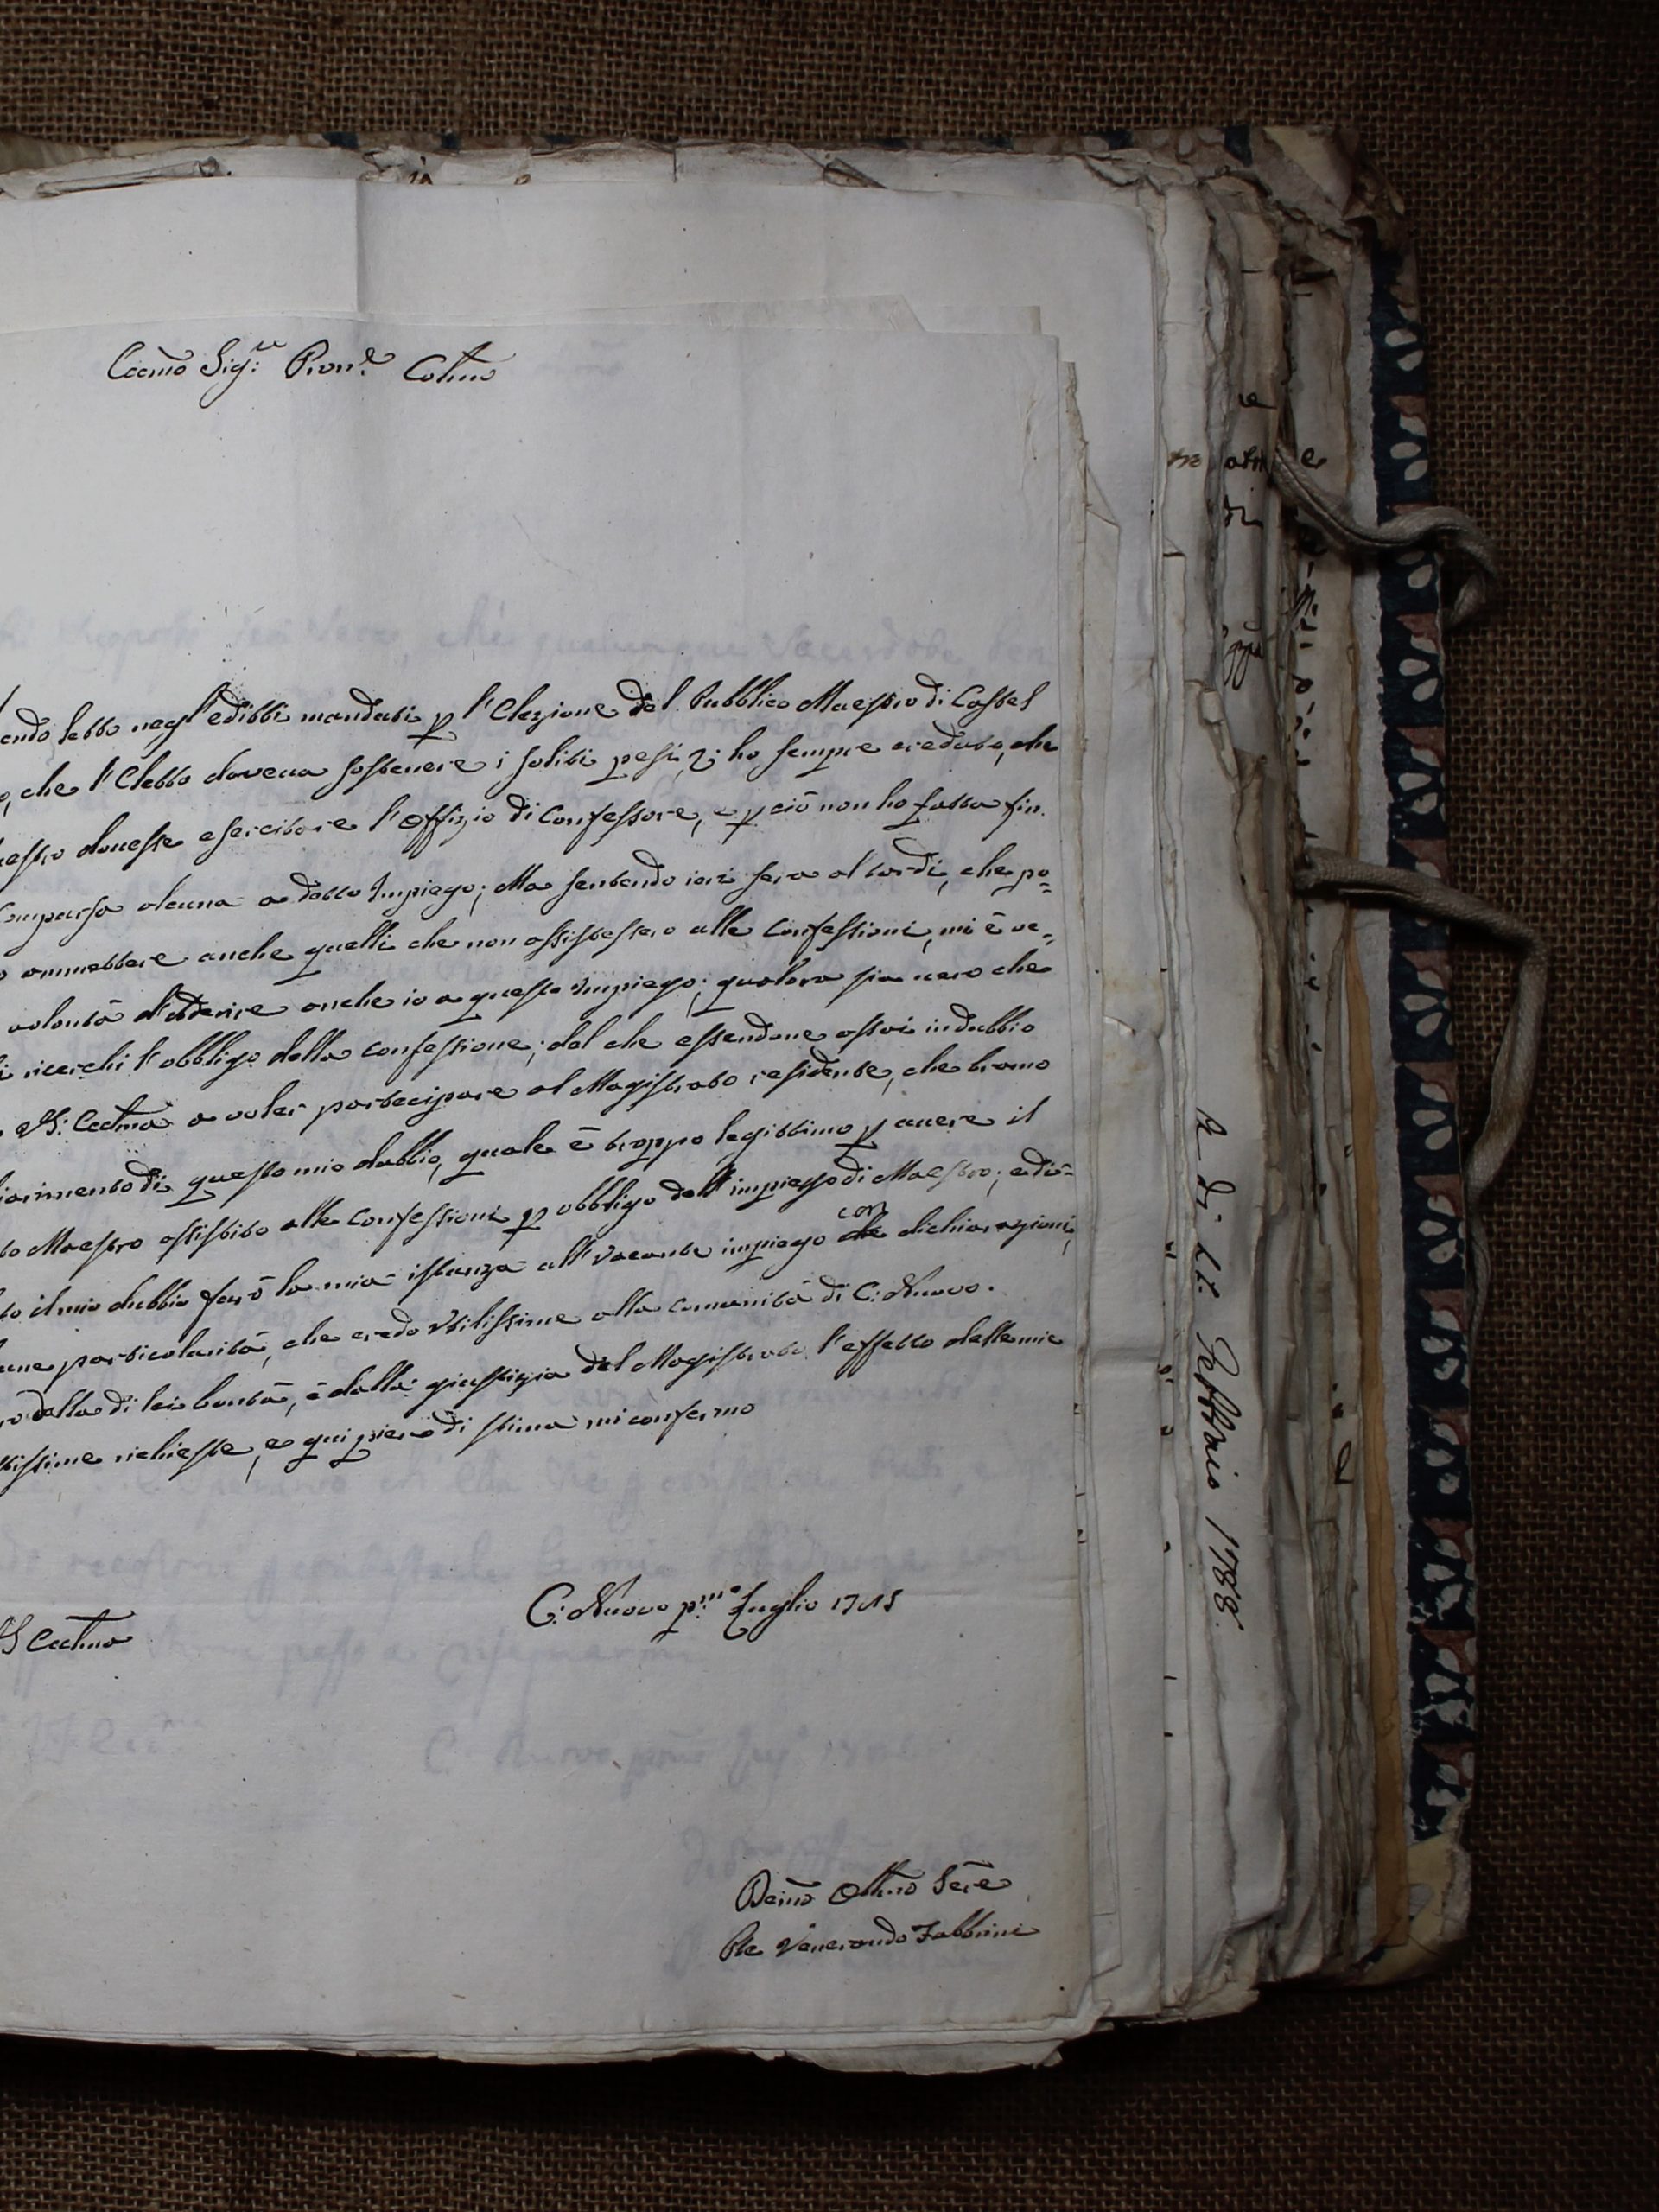 Eccmo Sig:re Pron:e Colmo
endo letto negl'editti mandati p l'Elezione del Pubblico Maestro di Castel
o, che l'Eletto doveva sostenere i soliti pesi, ho sempre creduto, che
aestro dovesse esercitare l'offizio di Confessore, e p ciò non ho fatto fin.
Comparsa alcuna a detto Impiego; Ma sentendo ieri sera al tardi, che po=
o ammettere anche quelli che non assistessero alle Confessioni, mi è ve=
volontà d'aderire anche io a questo impiego; qualora sia vero che
i ricerchi l'obbligo della confessione; del che essendone assai in dubbio
VS: Ecclma a voler partecipare al Magistrato residente, che bramo
iarimento di questo mio dubbio, quale è troppo legittimo p avere il
to Maestro assistito alle confessioni p obbligo dell'impiego di Maestro; e di=
to il mio dubbio farò la mia istanza all'vacante impiego con dichiarazioni,
cune particolarità, che credo Utilissime alla comunità di C: Nuovo.
ro dalla di lei bontà, è dalla giustizia del Magistrato l'effetto delle mie
tissime richieste, e qui pieno di stima mi confermo
VS Ecclma
C: Nuovo p:mo Luglio
Devmo Obblmo Sere
Pte Venerando Fabbrini
A di 22. Febbraio 1788